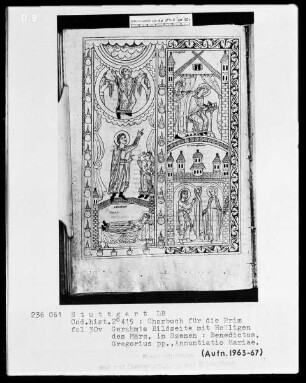 236 061 Stuttgart LB
Cod.hist.2°415 : Chorbuch für die Prim
fol 30v Gerahmte Bildseite mit Heiligen
des März, in Szenen : Benedictus,
Gregorius pp., Annuntiatio Mariae.
(Aufn.1963-67)